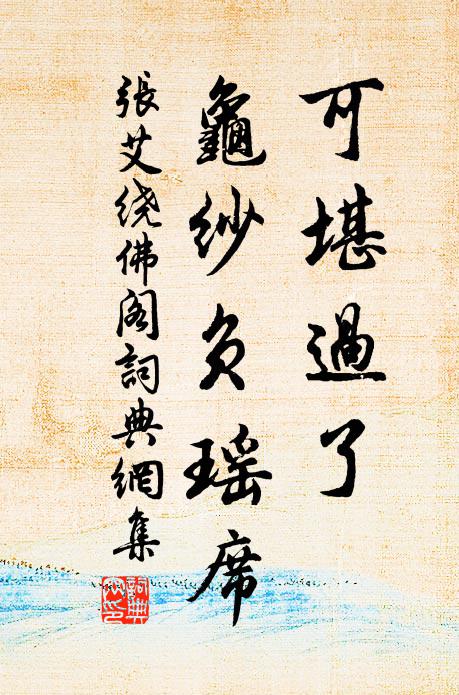 可堪過了
龜紗負瑶席
張艾绕佛阁詞典網集